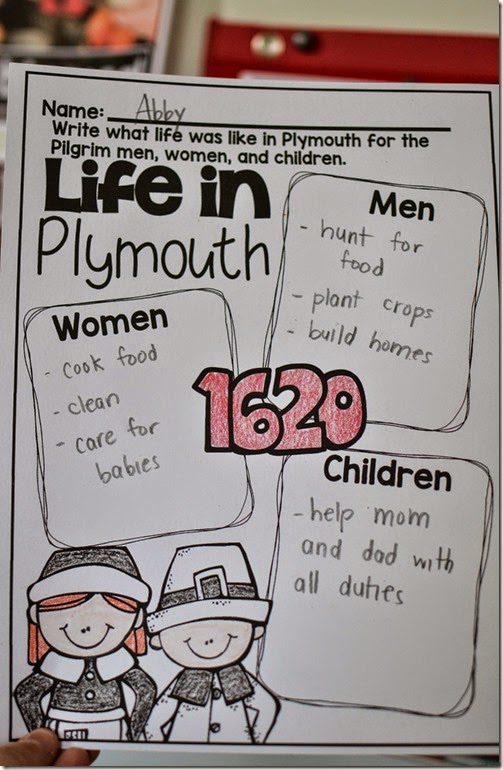 Name: Abby
Write what life was like in Plymouth for the
Pilgrim men, women, and children.
Life in
Plymouth
Men
- hunt for
food
- plant crops
- build homes
Women
- cook food
- clean
- care for
babies
1620
Children
- help mom
and dad with
all duties